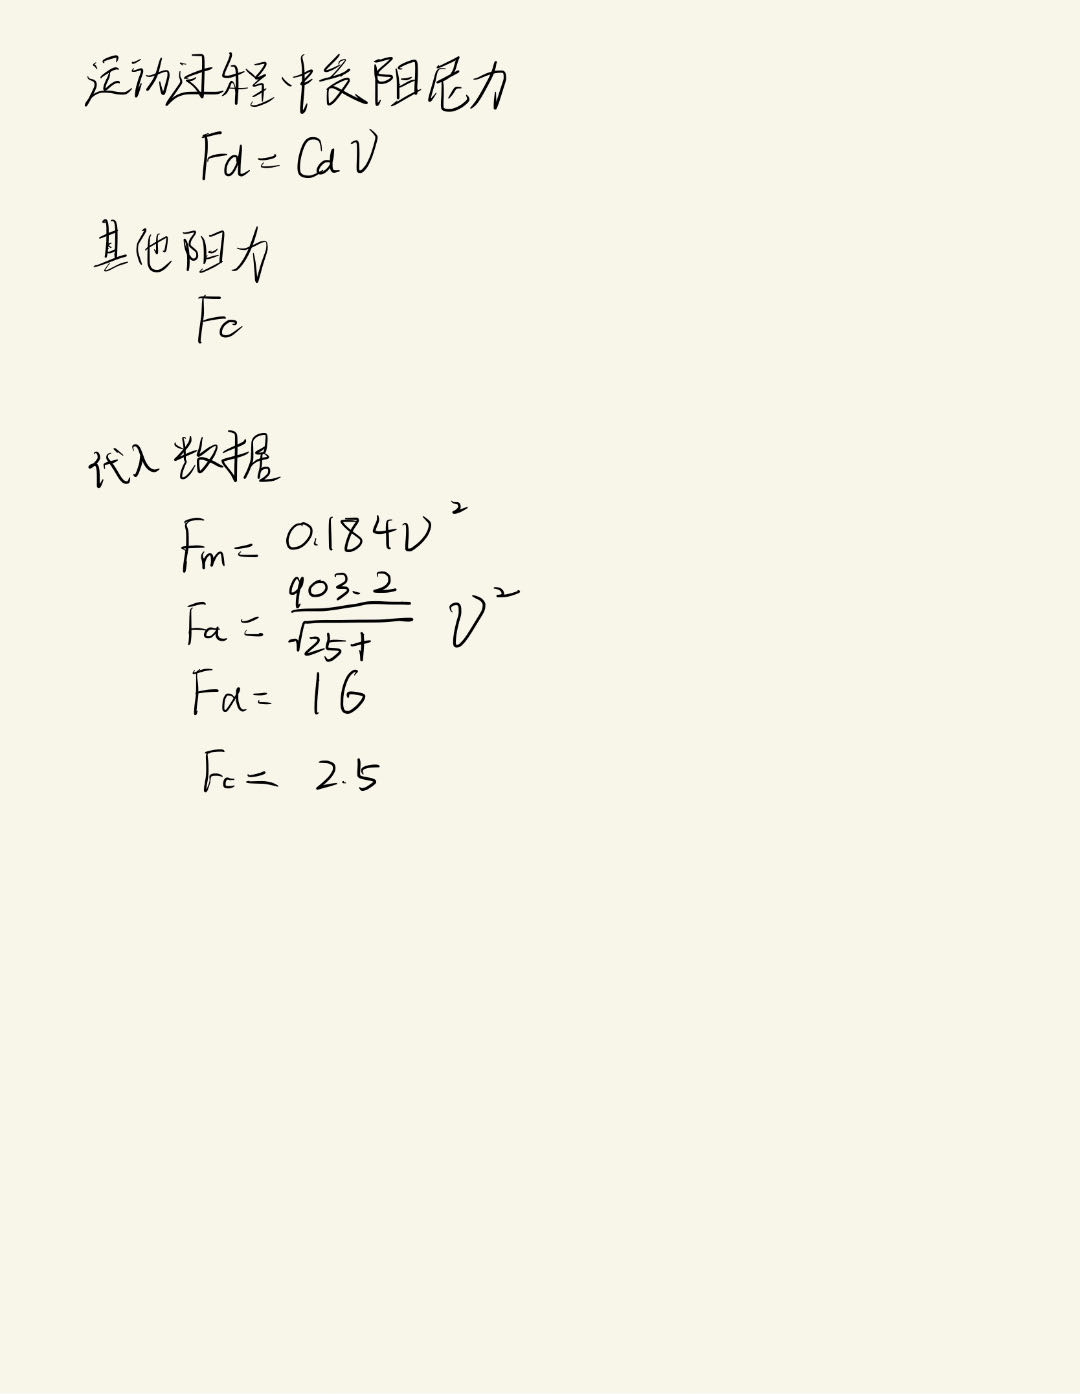 运动过程中受阻尼力
Fd = Cd V
其他阻力
Fc
代入数据
Fm = 0.184V²
Fa = 903.2/√25+ V²
Fd = 16
Fc = 2.5